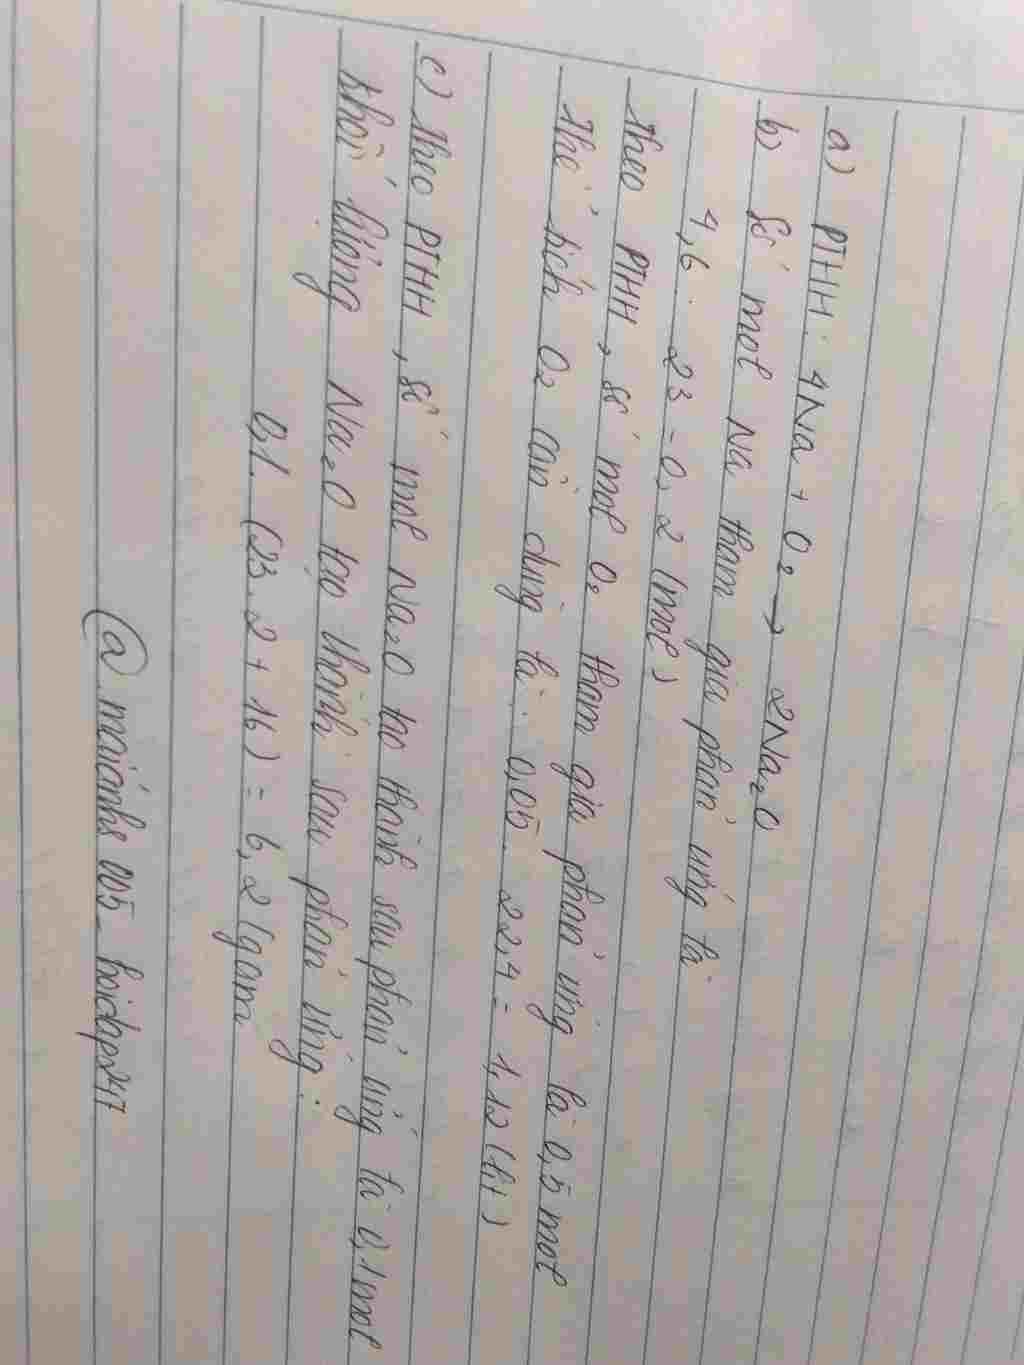 a) PTHH: 4Na + O₂ → 2Na₂O
b) số mol Na tham gia phản ứng là
4,6 : 23 = 0,2 (mol)
Theo PTHH, số mol O₂ tham gia phản ứng là 0,5 mol
Thể tích O₂ cần dùng là: 0,05 . 22,4 = 1,12 (lít)
c) Theo PTHH, số mol Na₂O tạo thành sau phản ứng là 0,1 mol
Khối lượng Na₂O tạo thành sau phản ứng:
0,1 . (23 . 2 + 16) = 6,2 (gam
@ maianhs005_hoidap247